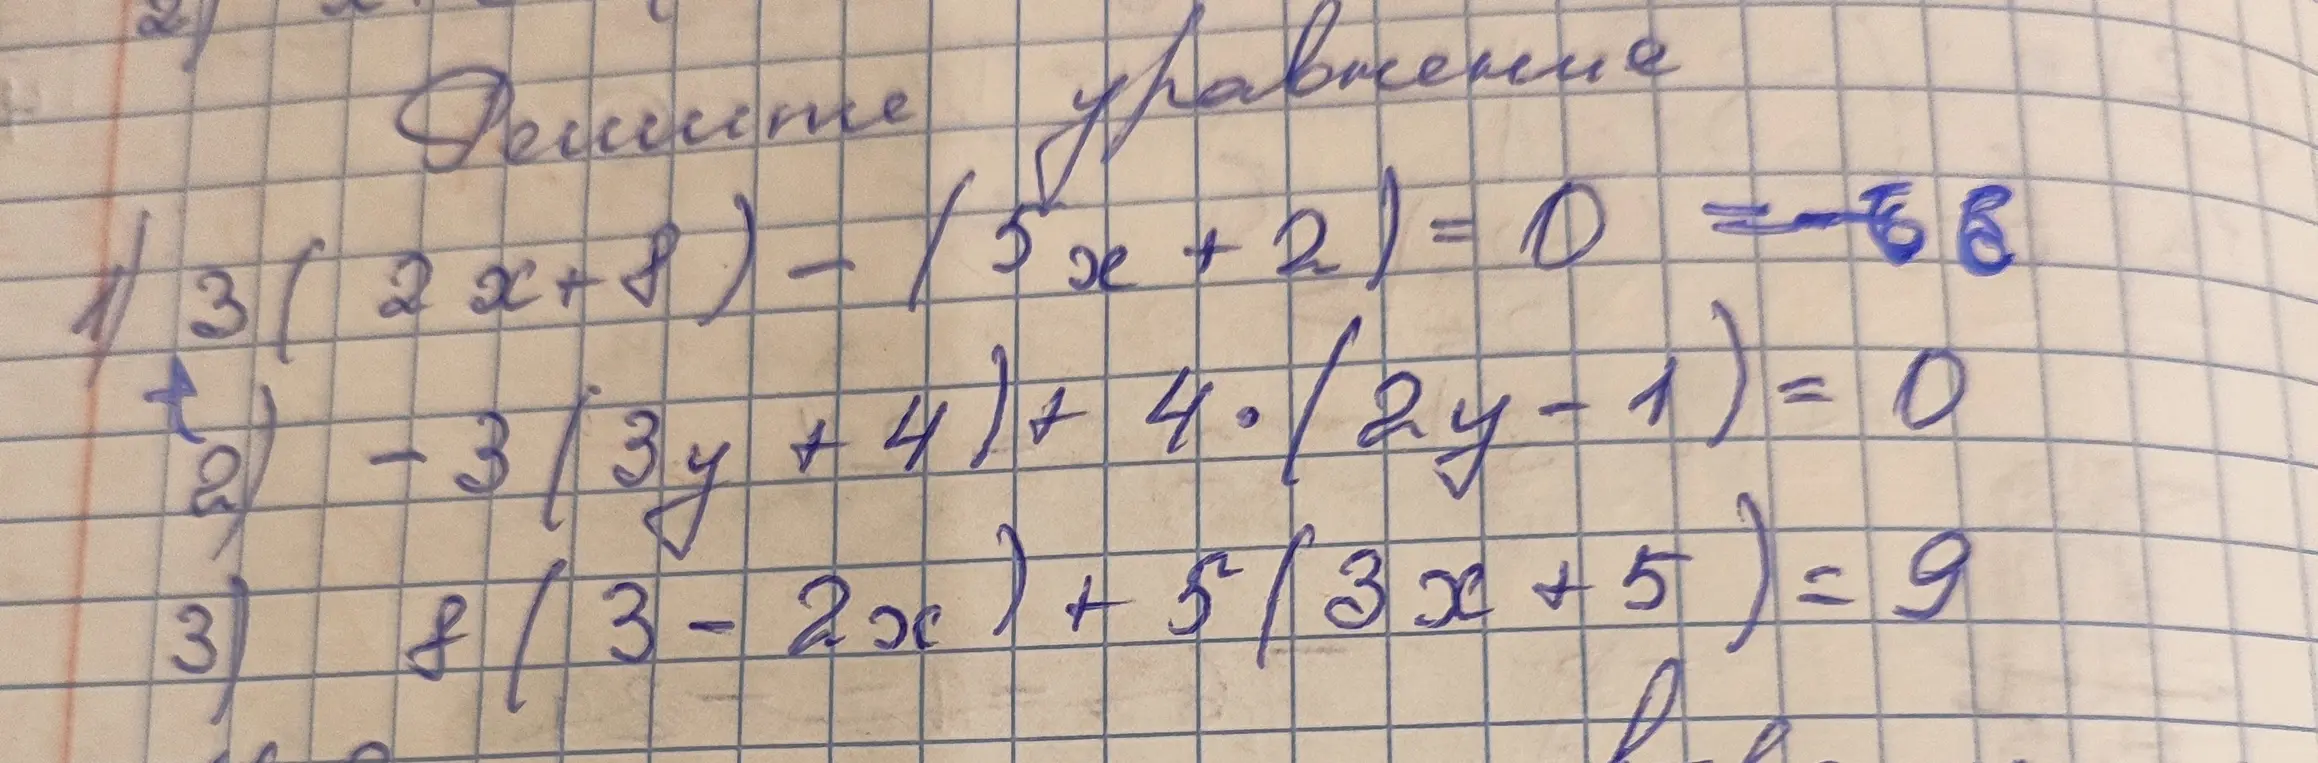 2)
Решите уравнение
1) 3(2x+8)-(5x+2)=0
2) -3(3y+4)+4·(2y-1)=0
3) 8(3-2x)+5(3x+5)=9